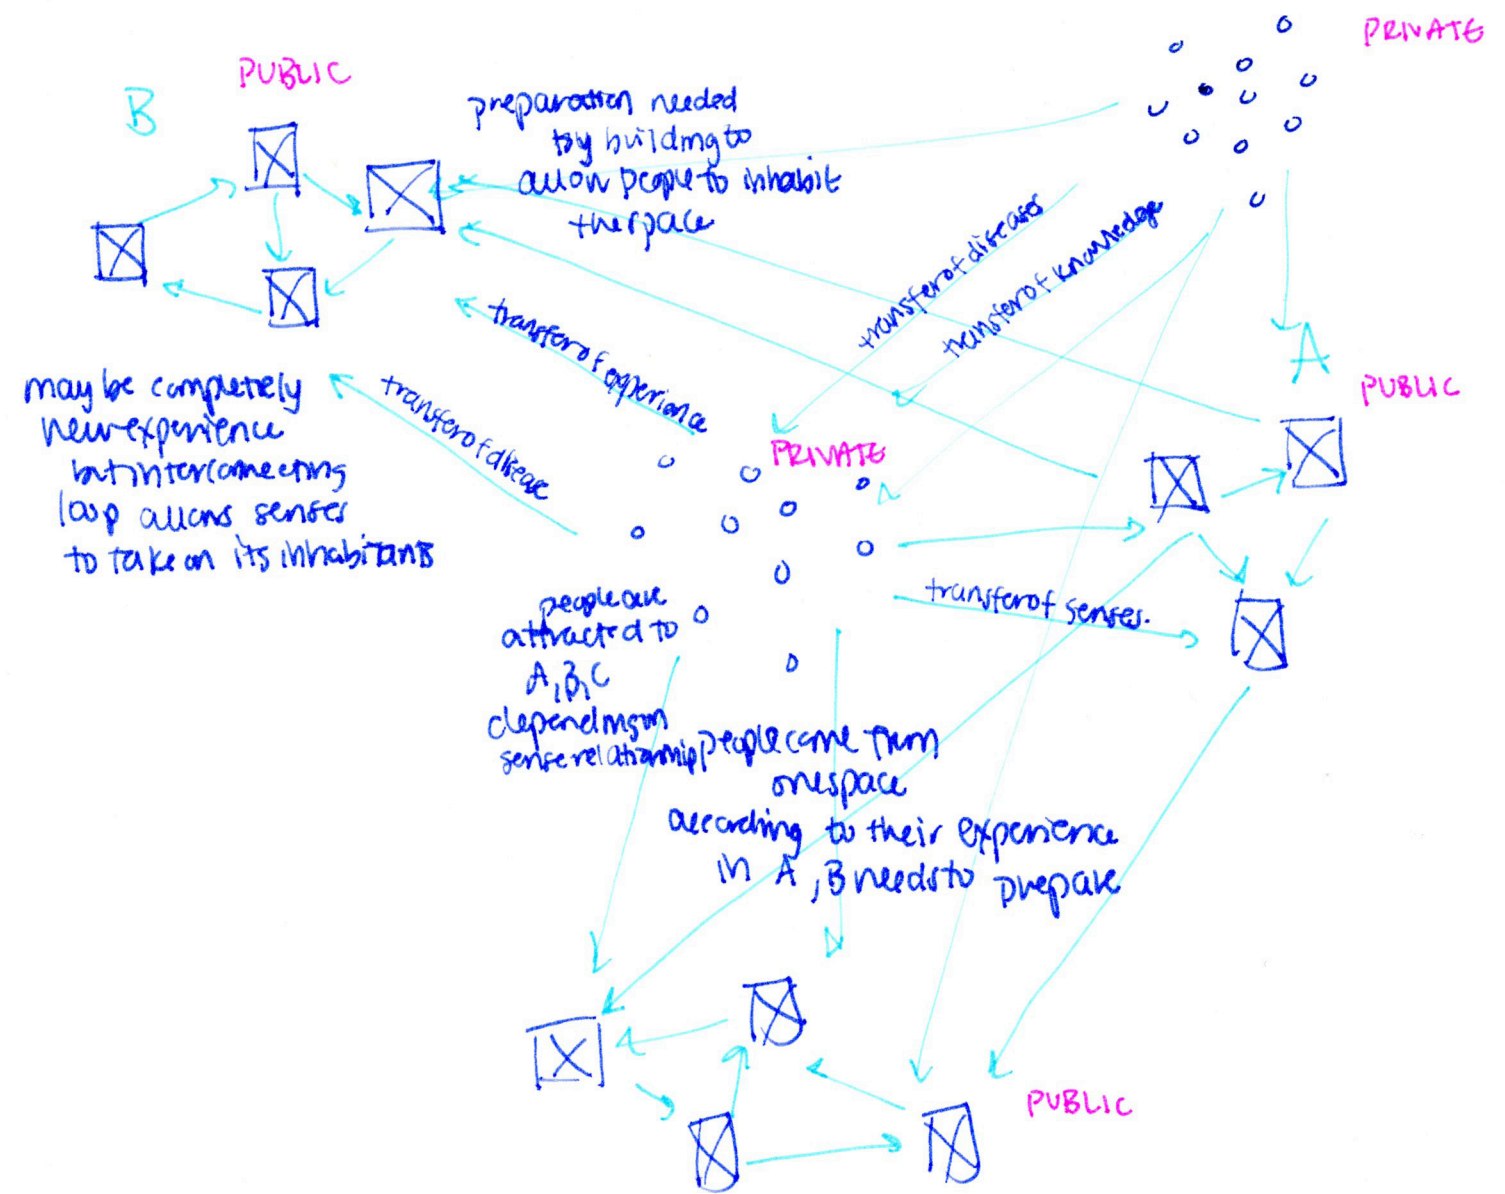 PRIVATE
PUBLIC
B
preparation needed
by building to
allow people to inhabit
the space
transfer of diseases
transfer of knowledge
A
PUBLIC
transfer of experience
transfer of disease
may be completely
new experience
but interconnecting
loop allows senses
to take on its inhabitants
PRIVATE
transfer of senses.
people are
attracted to
A, B, C
depending on
sense relationship
people come from
one space
according to their experience
in A, B needs to prepare
PUBLIC